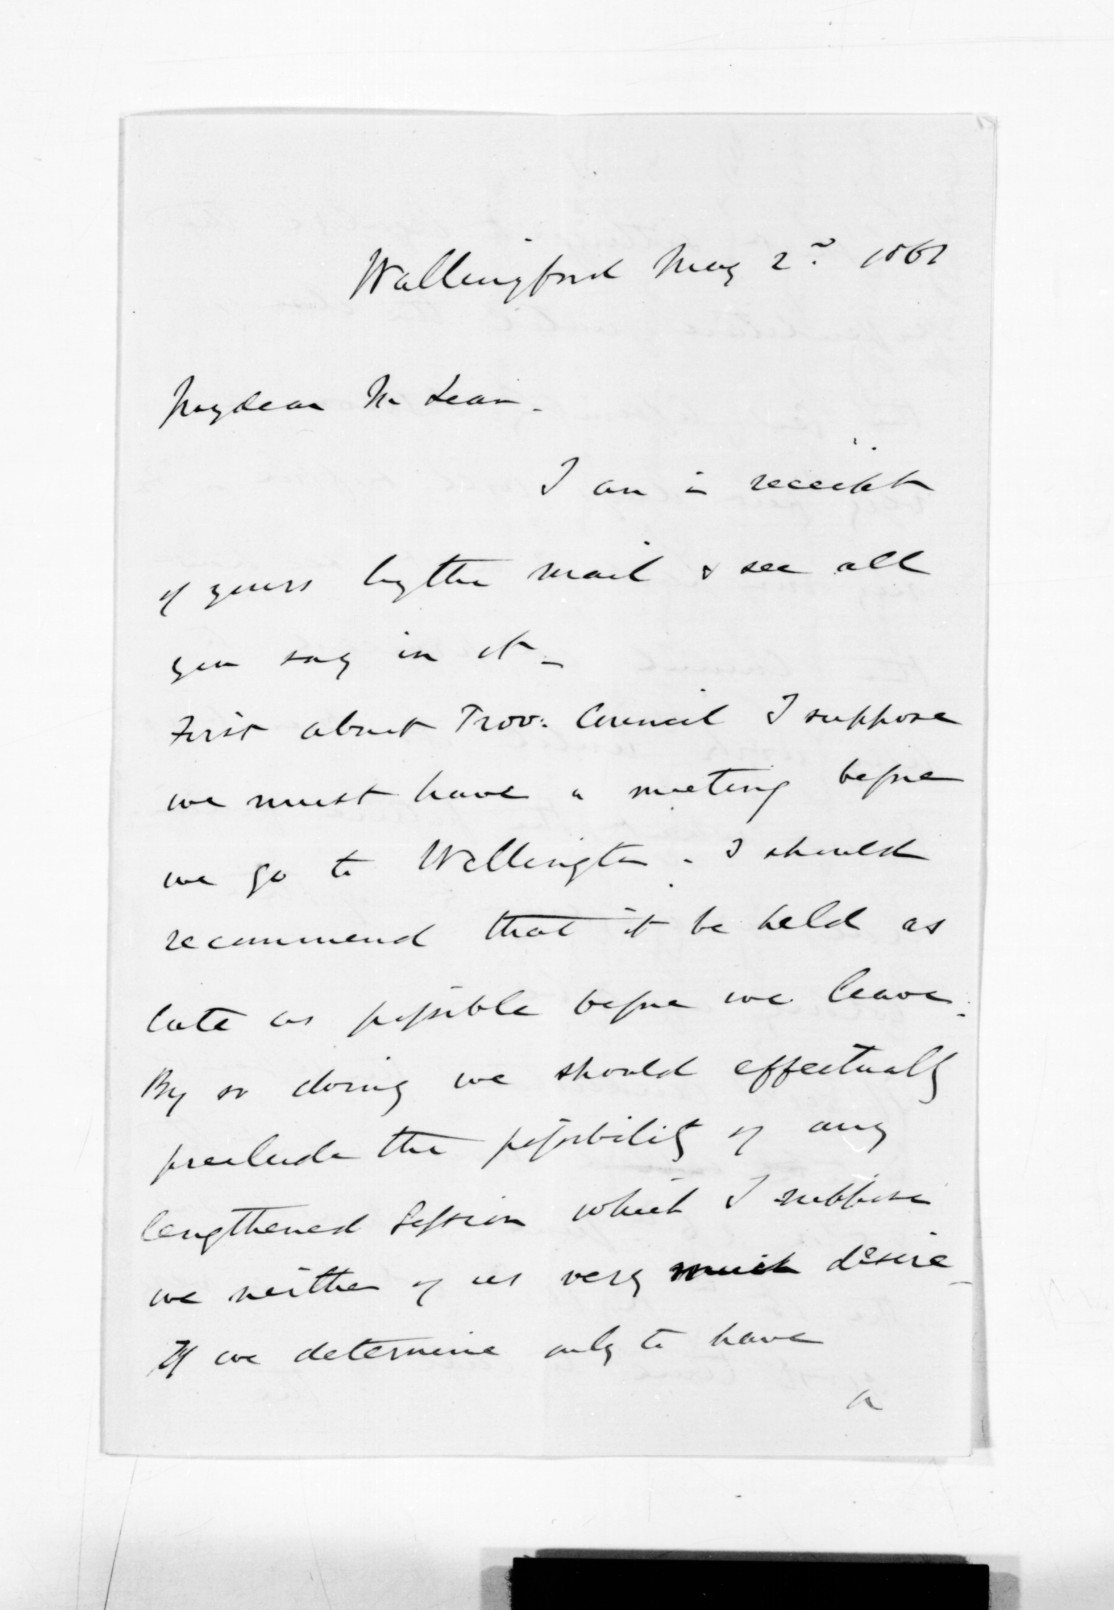 Wallingford May 2nd. 1861
My dear McLean.
I am in receipt
of yours by the mail & see all
you say in it_
First about Prov: Council I suppose
we must have a meeting before
we go to Wellington. I should
recommend that it be held as
late as possible before we leave.
By so doing we should effectually
preclude the possibility of any
lengthened Session which I suppose
we neither of us very much desire_
If we determine only to have
a